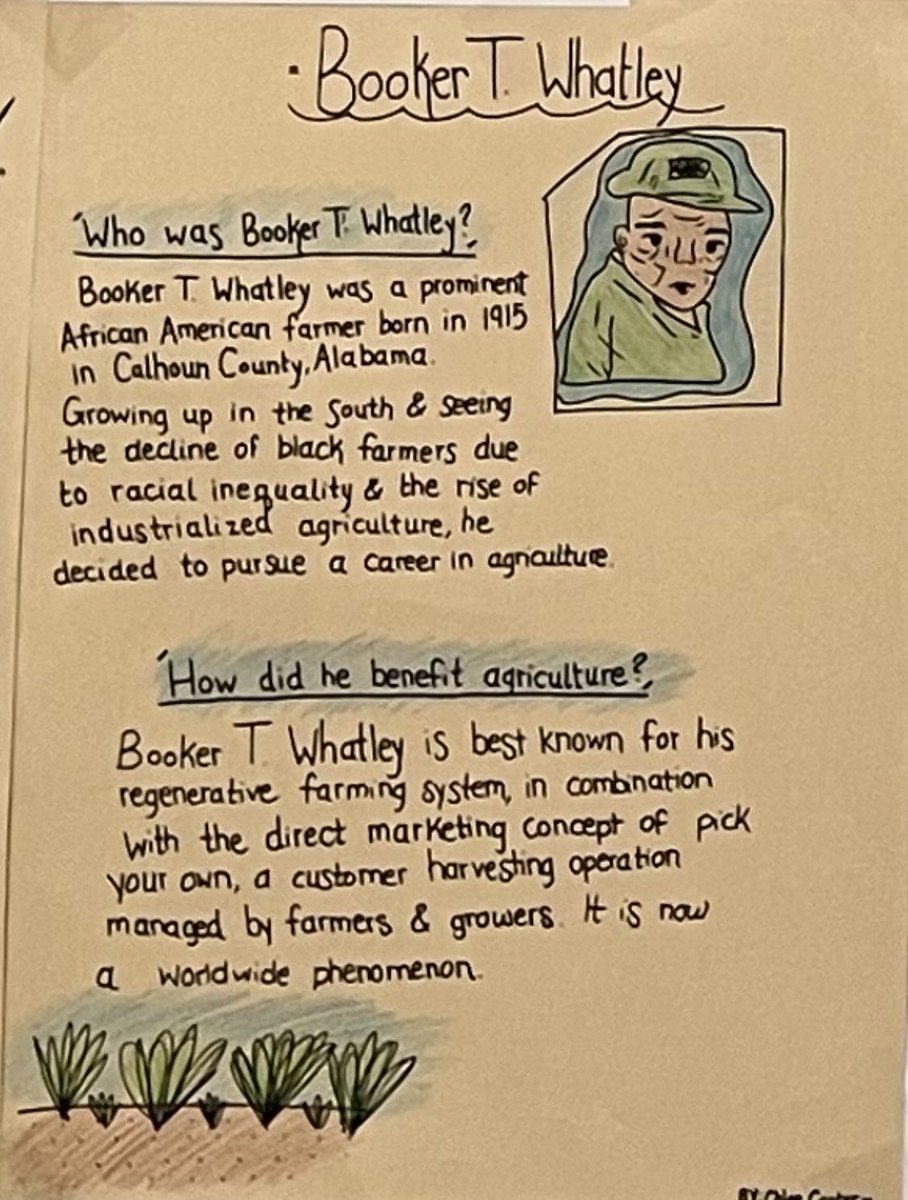 · Booker T. Whatley
'Who was Booker T. Whatley?,
Booker T. Whatley was a prominent
African American farmer born in 1915
in Calhoun County, Alabama.
Growing up in the South & seeing
the decline of black farmers due
to racial inequality & the rise of
industrialized agriculture, he
decided to pursue a career in agriculture.
'How did he benefit agriculture?,
Booker T. Whatley is best known for his
regenerative farming system, in combination
with the direct marketing concept of pick
your own, a customer harvesting operation
managed by farmers & growers. It is now
a worldwide phenomenon.
BY: Chloe